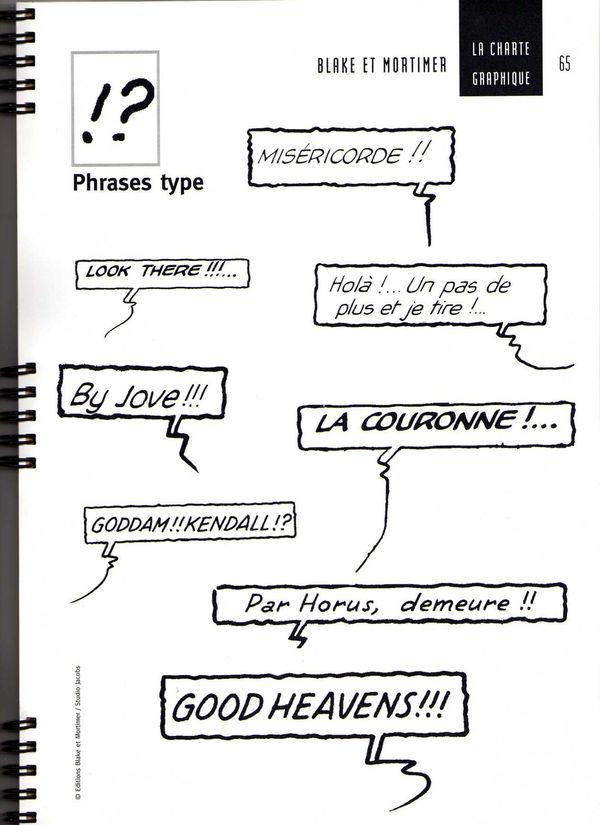 BLAKE ET MORTIMER
LA CHARTE
GRAPHIQUE
65
!?
Phrases type
MISÉRICORDE !!
LOOK THERE !!!...
Holà !... Un pas de
plus et je tire !...
By Jove !!!
LA COURONNE !...
GODDAM!! KENDALL!?
Par Horus, demeure !!
GOOD HEAVENS!!!
© Editions Blake et Mortimer / Studio Jacobs